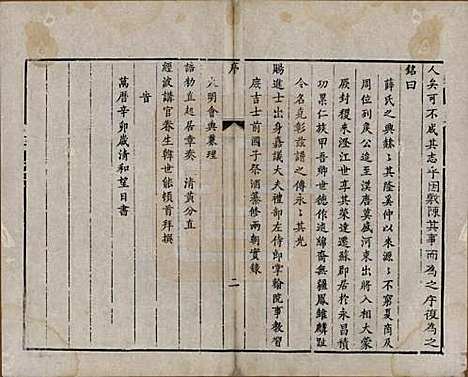 人矣可不成其志乎因敷陳其事而為之序復為之
銘曰
薛氏之興隷之其隆奚仲以來源之不窮夏商及
周位列侯公迨至漢唐莫盛河東出將入相大蒙
厥封稷來澄江世享其榮達遷蘇郡居於永昌積
功累仁族甲吾鄉世德作述綿裔無疆鳳雛麟趾
令名克彰茲譜之傳永之其光
賜進士出身嘉議大夫禮部左侍郎掌翰院事教習
庶吉士前國子祭酒纂修兩朝實錄
序
二
大明會典兼理
誥勑直起居章奏 清黃分直
經筵講官眷生韓世能頓首拜撰
旹
萬曆辛卯歲清和望日書